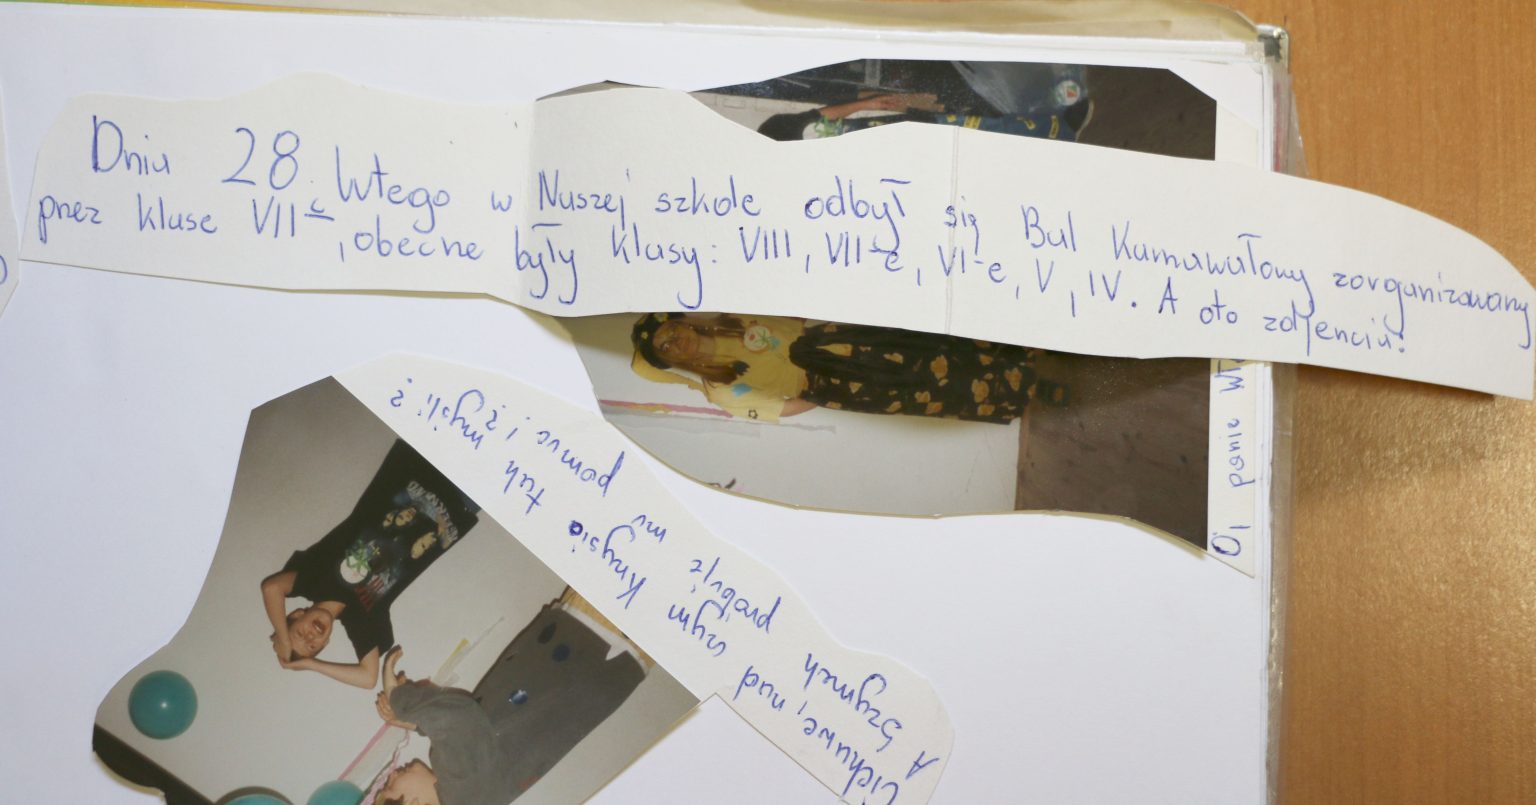 Dnia 28 lutego w Naszej szkole odbył się Bal Karnawałowy zorganizowany
przez klase VII c, obecne były klasy: VIII, VII-c, VI-e, V, IV. A oto zdjencia:
O, panie
Ciekawe, nad czym Krzysio tak myśli?
A Szymek próbuje mu pomuc i ż